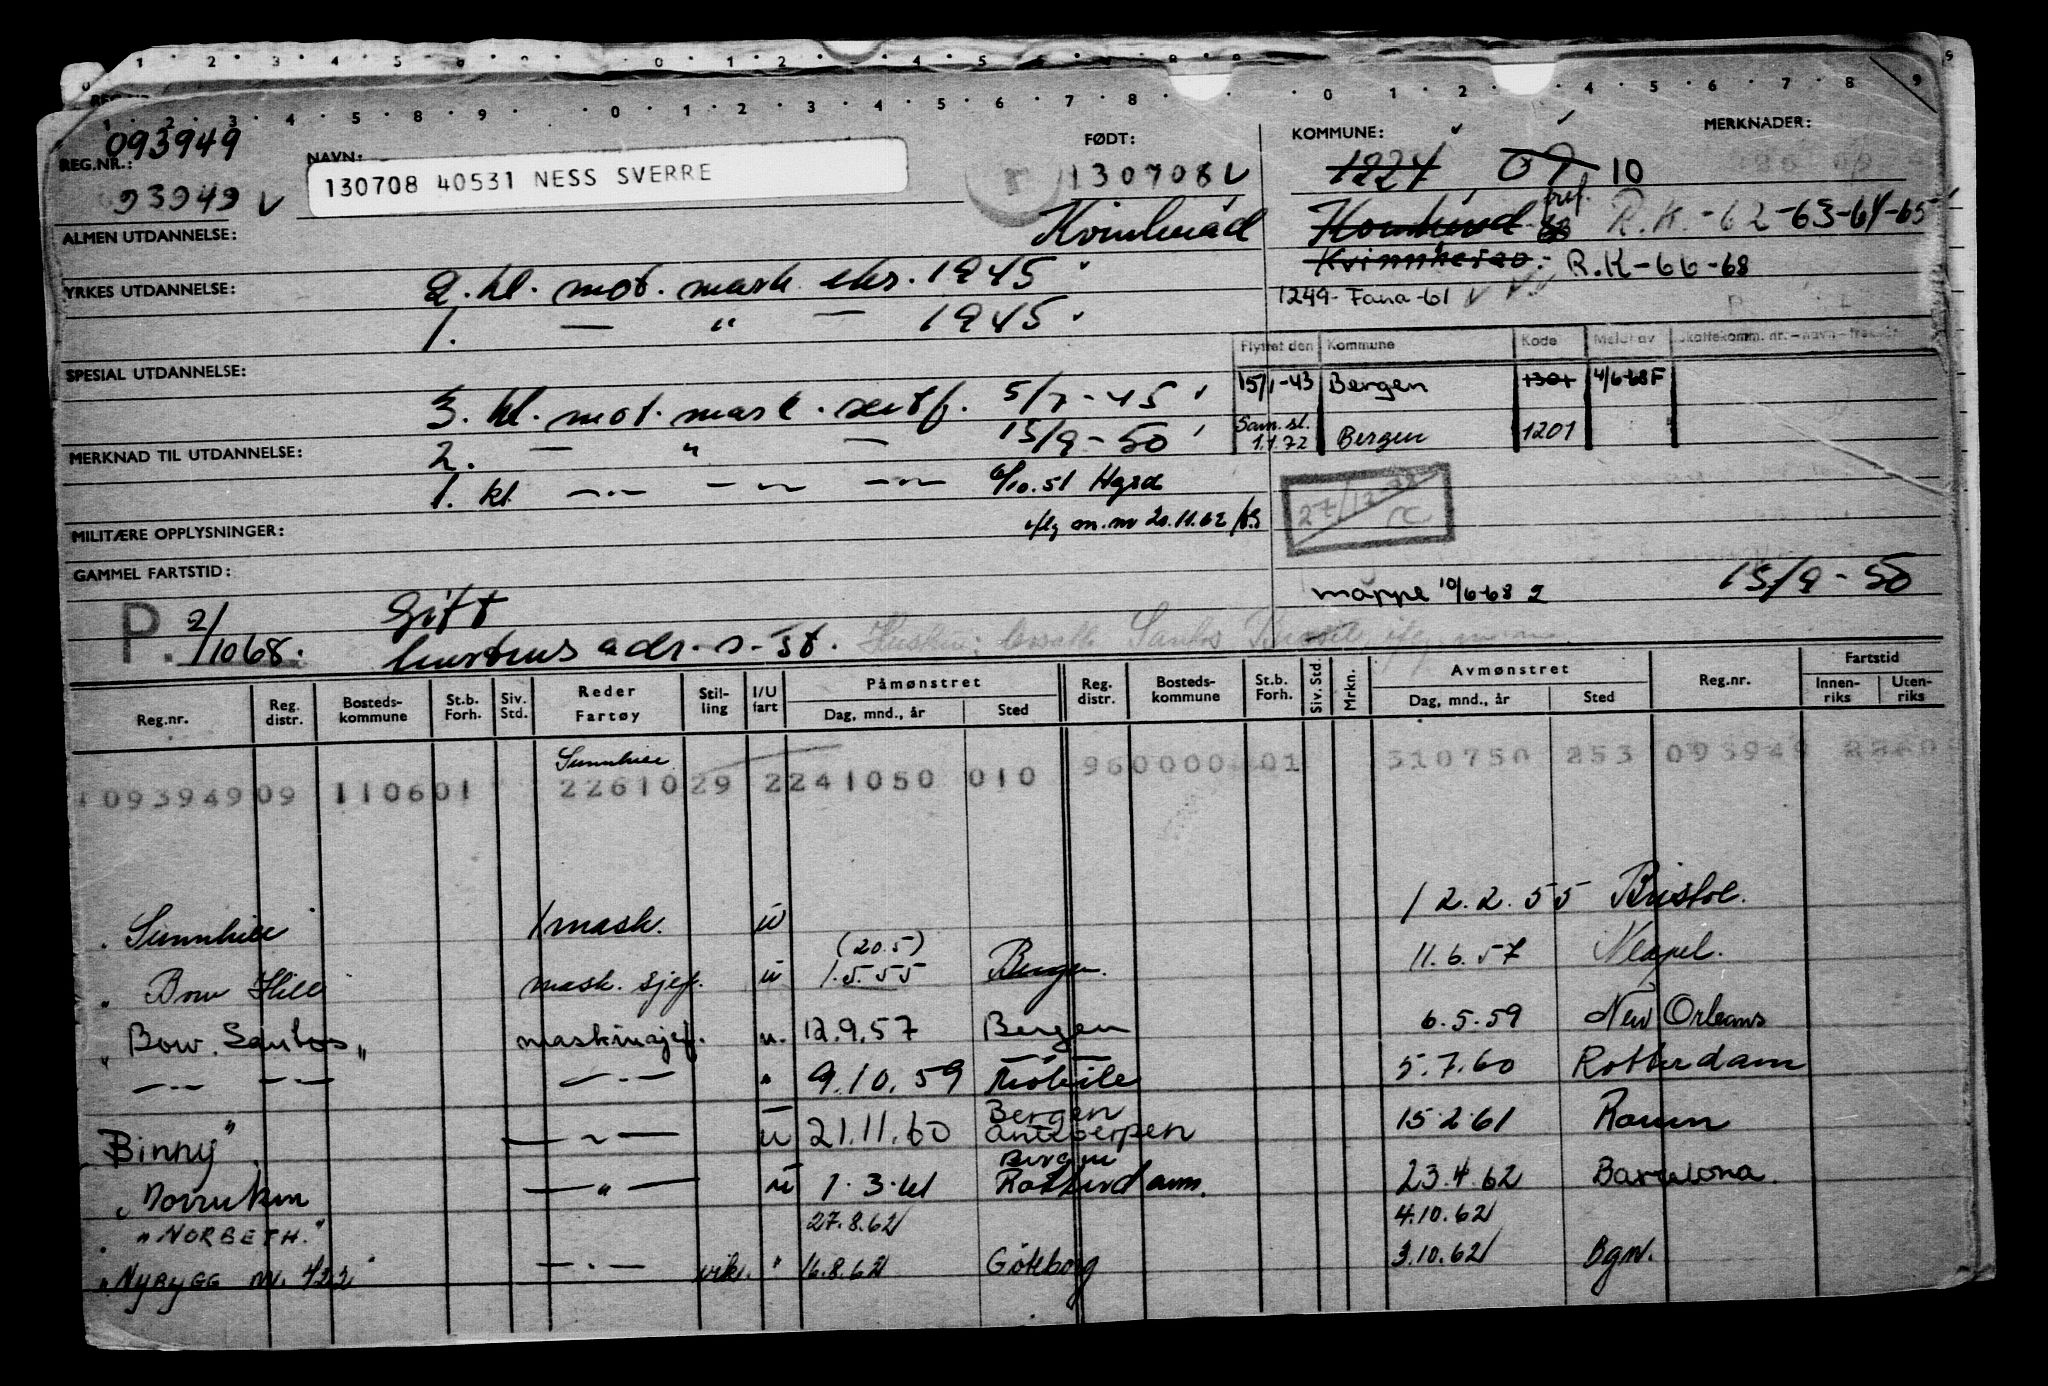 093949
REG.NR.:
93949 V
NAVN:
130708 40531 NESS SVERRE
FØDT:
130708 V
KOMMUNE:
1224 09 10
MERKNADER:
R.K.-62-63-64-65
Kvinnherad
R.K-66-68
1249-Fana-61
ALMEN UTDANNELSE:
YRKES UTDANNELSE:
2. kl. mot. mask. eks. 1945
1. — " — 1945
Flyttet den Kommune Kode Meldt av Skattekomm. nr.–navn–fra år
15/1-43 Bergen 1301 4/6-68F
Sam.sl. 1.1.72 Bergen 1201
SPESIAL UTDANNELSE:
3. kl. mot. mask. sertf. 5/7-45
MERKNAD TIL UTDANNELSE:
2. — " — 15/9-50
1. kl —.— —.— —.— 6/10.51 Hgsd
iflg m.nr 20.11.62
MILITÆRE OPPLYSNINGER:
GAMMEL FARTSTID:
mappe 10/6-68
15/9-50
P. 2/1068.
Gift
hustrus adr. s. st.
Reg.nr. Reg. distr. Bosteds-kommune St.b. Forh. Siv. Std. Reder Fartøy Stil-ling I/U fart Påmønstret Dag, mnd., år Sted Reg. distr. Bosteds-kommune St.b. Forh. Siv. Std. Mrkn. Avmønstret Dag, mnd., år Sted Reg.nr. Fartstid Innen-riks Uten-riks
Sunnhill
1 093949 09 1106 01 22610 29 2 241050 010 960000 01 310750 253 093949
Sunnhill 1 mask. u 12.2.55 Bristol.
Bow Hill mask. sjef. u (20.5) 1.5.55 Bergen. 11.6.57 Neapel.
" Bow. Santos " maskinsjef. u. 12.9.57 Bergen 6.5.59 New Orleans
—.— —.— —.— " 9.10.59 Mobile 5.7.60 Rotterdam
Bergen
Binny" —.— u 21.11.60 Antwerpen 15.2.61 Rouen
Bergen
— " — u 1.3.61 Rotterdam. 23.4.62 Barcelona.
" NORBETH." 27.8.62 4.10.62
" NYBYGG nr. 422" —.— vik. " 16.8.62 Göteborg 3.10.62 Bgn.